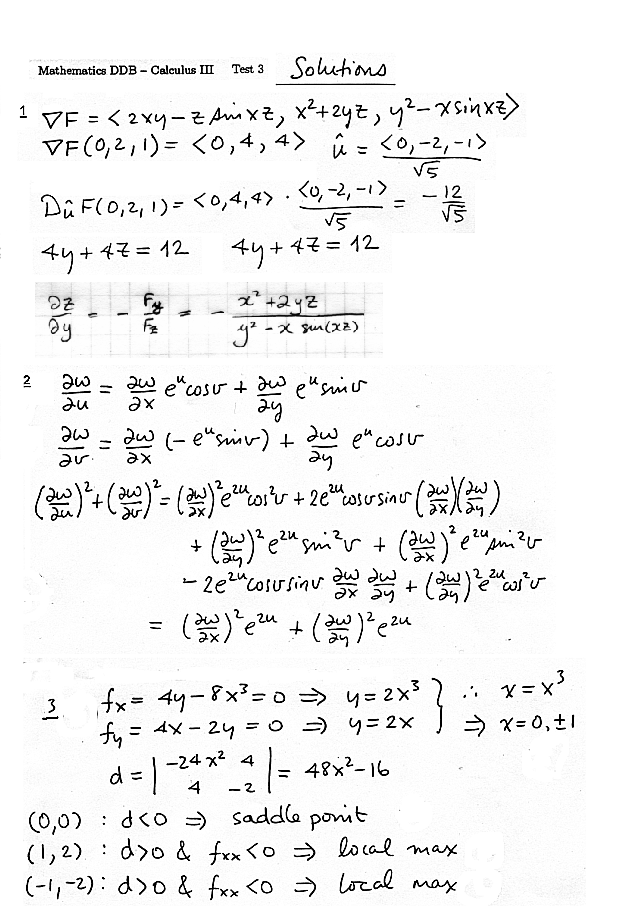 Mathematics DDB – Calculus III Test 3 Solutions
1 ∇F = < 2xy − z sin xz, x² + 2yz, y² − x sin xz >
∇F(0,2,1) = <0,4,4> û = <0,−2,−1>/√5
DûF(0,2,1) = <0,4,4> · <0,−2,−1>/√5 = −12/√5
4y + 4z = 12 4y + 4z = 12
∂z/∂y = − Fy/Fz = − (x² + 2yz)/(y² − x sin(xz))
2 ∂w/∂u = ∂w/∂x eᵘ cos v + ∂w/∂y eᵘ sin v
∂w/∂v = ∂w/∂x (−eᵘ sin v) + ∂w/∂y eᵘ cos v
(∂w/∂u)² + (∂w/∂v)² = (∂w/∂x)² e²ᵘ cos² v + 2e²ᵘ cos v sin v (∂w/∂x)(∂w/∂y)
+ (∂w/∂y)² e²ᵘ sin² v + (∂w/∂x)² e²ᵘ sin² v
− 2e²ᵘ cos v sin v ∂w/∂x ∂w/∂y + (∂w/∂y)² e²ᵘ cos² v
= (∂w/∂x)² e²ᵘ + (∂w/∂y)² e²ᵘ
3 fx = 4y − 8x³ = 0 ⇒ y = 2x³ } ∴ x = x³
fy = 4x − 2y = 0 ⇒ y = 2x } ⇒ x = 0, ±1
d = | −24x² 4 |
| 4 −2 | = 48x² − 16
(0,0) : d<0 ⇒ saddle point
(1,2) : d>0 & fxx<0 ⇒ local max
(−1,−2) : d>0 & fxx<0 ⇒ local max